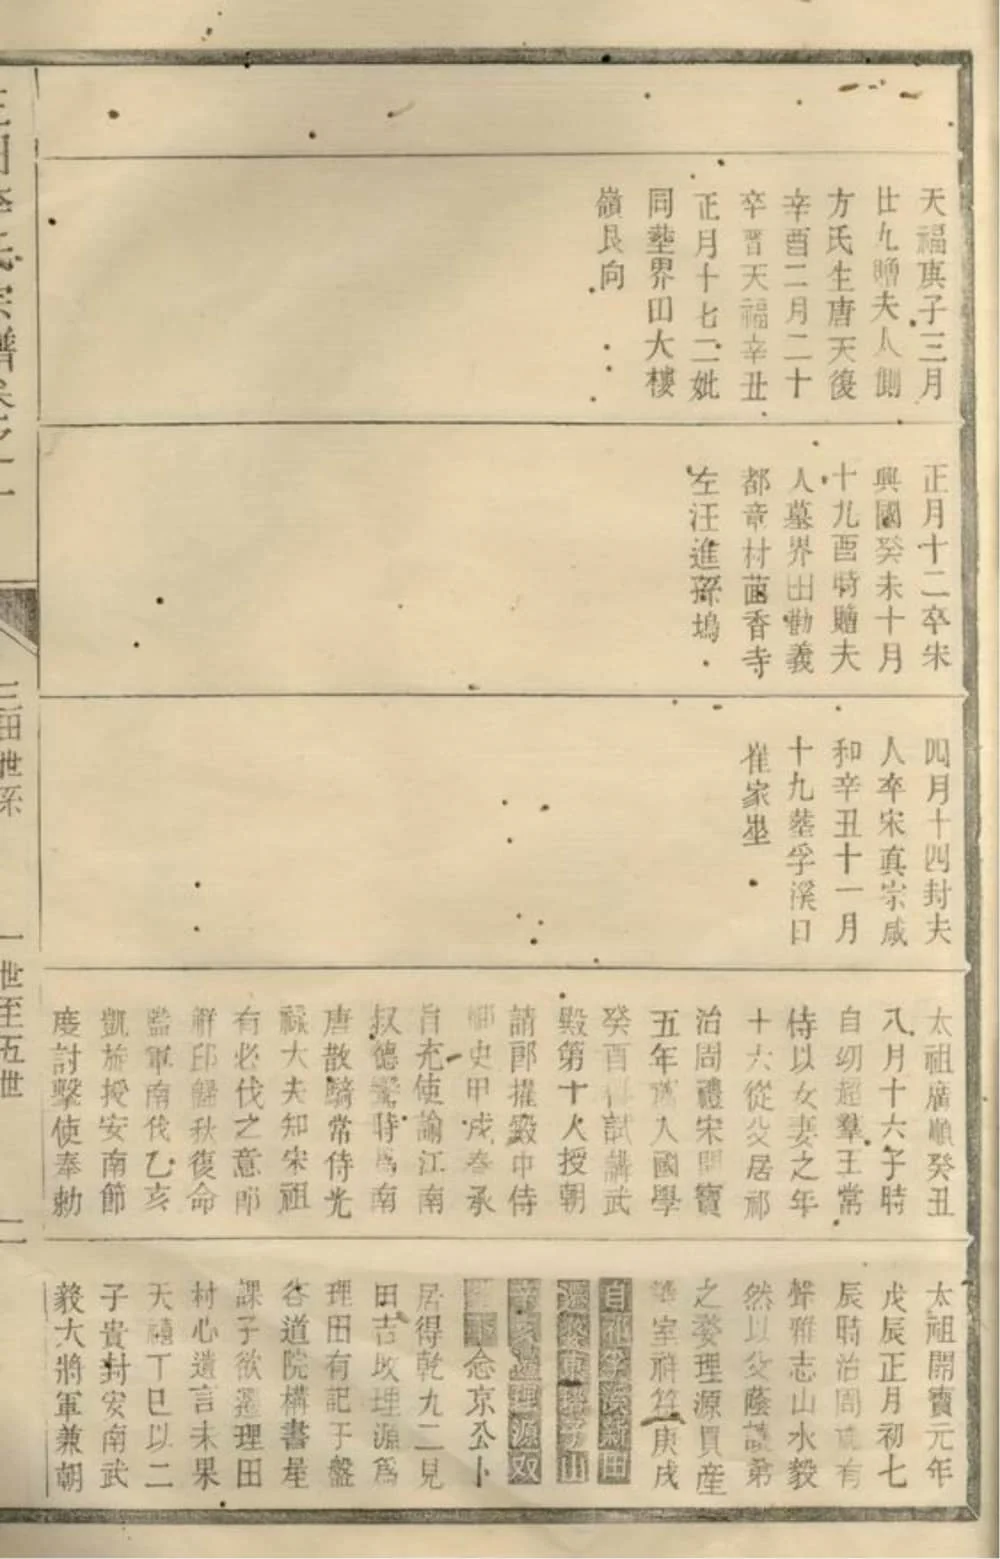 天福庚子三月
廿九贈夫人側
方氏生唐天復
辛酉二月二十
卒晋天福辛丑
正月十七二妣
同塟界田大樓
嶺艮向
正月十二卒宋
興國癸未十月
十九酉時贈夫
人墓界田勸義
都章村茴香寺
左汪進孫塢
四月十四封夫
人卒宋真宗咸
和辛丑十一月
十九塟孚溪口
崔家坐
太祖廣順癸丑
八月十六子時
自幼超羣王常
侍以女妻之年
十六從父居祁
治周禮宋開寶
五年入國學
癸酉試講武
殿第十人授朝
請郎擢殿中侍
御史甲戍春承
旨充使諭江南
叔德鸞時爲南
唐散騎常侍光
祿大夫知宋祖
有必伐之意郎
解印歸秋復命
監軍南伐乙亥
凱旋授安南節
度討擊使奉勅
太祖開寶元年
戊辰正月初七
辰時治周有
聲雅志山水毅
然以父蔭讓弟
之婺理源買産
室祥符庚戌
自新田
還山
理源双
念京公卜
居得乾九二見
田吉攺理源爲
理田有記于盤
谷道院構書屋
課子欲遷理田
村心遺言未果
天禧丁巳以二
子貴封安南武
毅大將軍兼朝
三田李氏宗譜卷之一
三田世系
一世至五世